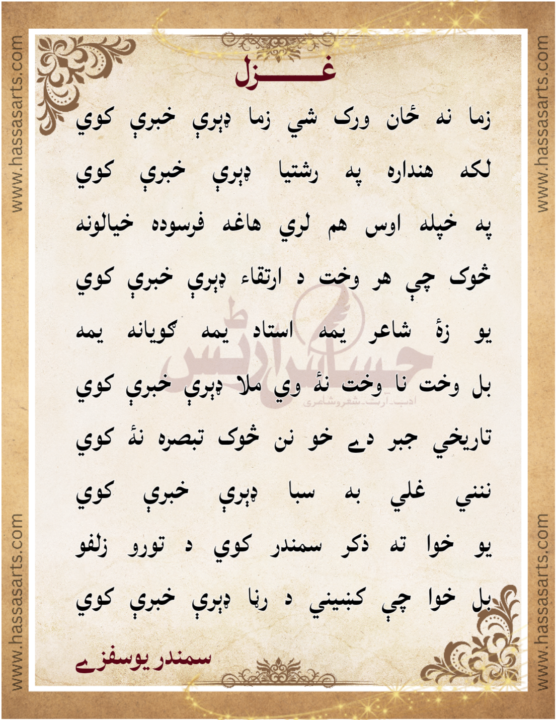 غـــــزل
زما نه ځان ورک شي زما ډېرې خبرې کوي
لکه هنداره په رشتیا ډېرې خبرې کوي
په خپله اوس هم لري هاغه فرسوده خیالونه
څوک چې هر وخت د ارتقاء ډېرې خبرې کوي
یو زۀ شاعر یمه استاد یمه ګویانه یمه
بل وخت نا وخت نۀ وي ملا ډېرې خبرې کوي
تاریخي جبر دے خو نن څوک تبصره نۀ کوي
ننني غلي به سبا ډېرې خبرې کوي
یو خوا ته ذکر سمندر کوي د تورو زلفو
بل خوا چې کښیني د رڼا ډېرې خبرې کوي
سمندر یوسفزے
حساس آرٹس
ادب۔آرٹ۔شعروشاعری
www.hassasarts.com
www.hassasarts.com
www.hassasarts.com
www.hassasarts.com